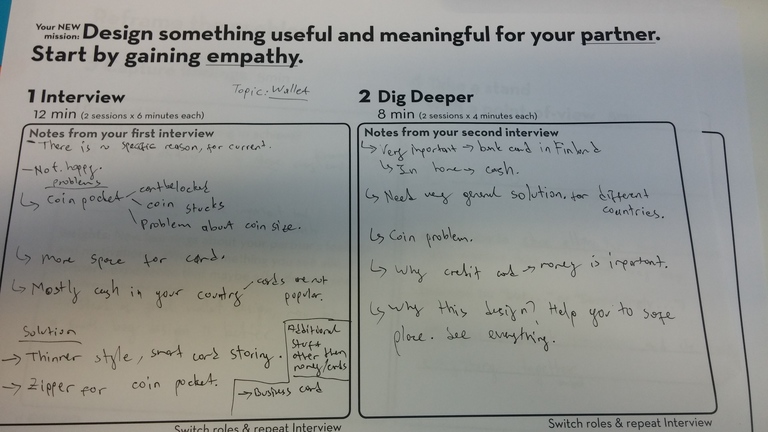 Your NEW mission: Design something useful and meaningful for your partner.
Start by gaining empathy.
Topic: Wallet
1 Interview
12 min (2 sessions x 6 minutes each)
Notes from your first interview
- There is no specific reason, for current.
- Not happy.
problems
↳ coin pocket
can't be locked
coin stucks
Problem about coin size.
↳ more space for card.
↳ Mostly cash in your country
cards are not popular.
Solution
→ Thinner style, smart card storing.
→ Zipper for coin pocket.
Additional
stuff
other then
money/cards
→ Business card
Switch roles & repeat Interview
2 Dig Deeper
8 min (2 sessions x 4 minutes each)
Notes from your second interview
↳ Very important → bank card in Finland
↳ In home → cash.
↳ Need very general solution, for different
countries.
↳ Coin problem.
↳ Why credit card → money is inportant.
↳ Why this design? Help you to
place. See everything.
Switch roles & repeat Interview